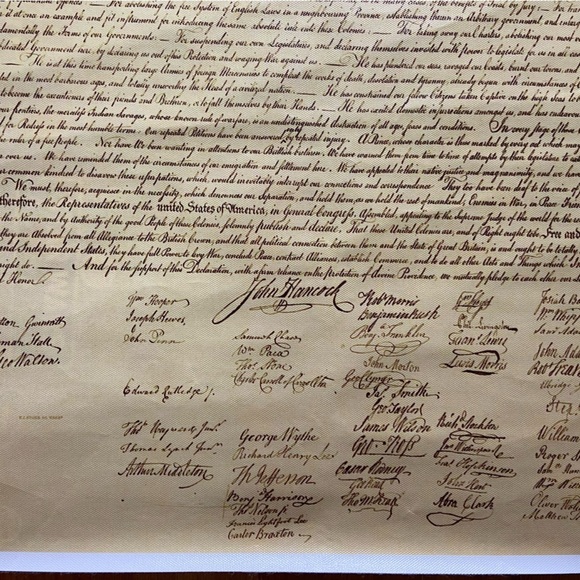 For abolishing the free System of English Laws in a neighbouring Province, establishing therein an Arbitrary government, and
it at once an example and fit instrument for introducing the same absolute rule into these Colonies: — For taking away our Charters, abolishing our most
fundamentally the Forms of our Governments: — For suspending our own Legislatures, and declaring themselves invested with power to legislate for us in all
abdicated Government here, by declaring us out of his Protection and waging War against us. — He has plundered our seas, ravaged our Coasts, burnt our towns, and
He is at this time transporting large Armies of foreign Mercenaries to compleat the works of death, desolation and tyranny, already begun with circumstances of
in the most barbarous ages, and totally unworthy the Head of a civilized nation. — He has constrained our fellow Citizens taken Captive on the high Seas to
to become the executioners of their friends and Brethren, or to fall themselves by their Hands. — He has excited domestic insurrections amongst us, and has
our frontiers, the merciless Indian Savages, whose known rule of warfare, is an undistinguished destruction of all ages, sexes and conditions. In every stage of these
for Redress in the most humble terms: Our repeated Petitions have been answered only by repeated injury. A Prince, whose character is thus marked by every act which may
ruler of a free people. Nor have We been wanting in attentions to our Brittish brethren. We have warned them from time to time of attempts by their legislature to
over us. We have reminded them of the circumstances of our emigration and settlement here. We have appealed to their native justice and magnanimity, and we have
our common kindred to disavow these usurpations, which, would inevitably interrupt our connections and correspondence. They too have been deaf to the voice of
We must, therefore, acquiesce in the necessity, which denounces our Separation, and hold them, as we hold the rest of mankind, Enemies in War, in Peace
therefore, the Representatives of the united States of America, in General Congress, Assembled, appealing to the Supreme Judge of the world for the
the Name, and by Authority of the good People of these Colonies, solemnly publish and declare, That these United Colonies are, and of Right ought to be Free and
they are Absolved from all Allegiance to the British Crown, and that all political connection between them and the State of Great Britain, is and ought to be totally
and Independent States, they have full Power to levy War, conclude Peace, contract Alliances, establish Commerce, and to do all other Acts and Things which
right do. — And for the support of this Declaration, with a firm reliance on the Protection of divine Providence, we mutually pledge to each other our
Honor
John Hancock
Button Gwinnett
Lyman Hall
Geo Walton.
Wm Hooper
Joseph Hewes,
John Penn
Edward Rutledge /.
Thos Heyward Junr.
Thomas Lynch Junr.
Arthur Middleton
Samuel Chase
Wm. Paca
Thos. Stone
Charles Carroll of Carrollton
George Wythe
Richard Henry Lee
Th Jefferson
Benj Harrison
Thos Nelson jr.
Francis Lightfoot Lee
Carter Braxton
Robt Morris
Benjamin Rush
Benj. Franklin
John Morton
Geo Clymer
Jas. Smith
Geo. Taylor
James Wilson
Geo. Ross
Caesar Rodney
Geo Read
Tho M:Kean
Wm Floyd
Phil. Livingston
Frans. Lewis
Lewis Morris
Richd. Stockton
Jno Witherspoon
Fras. Hopkinson
John Hart
Abra Clark
Josiah
Wm Whipp
John
Step.
William
Roger
Oliver
Matthew